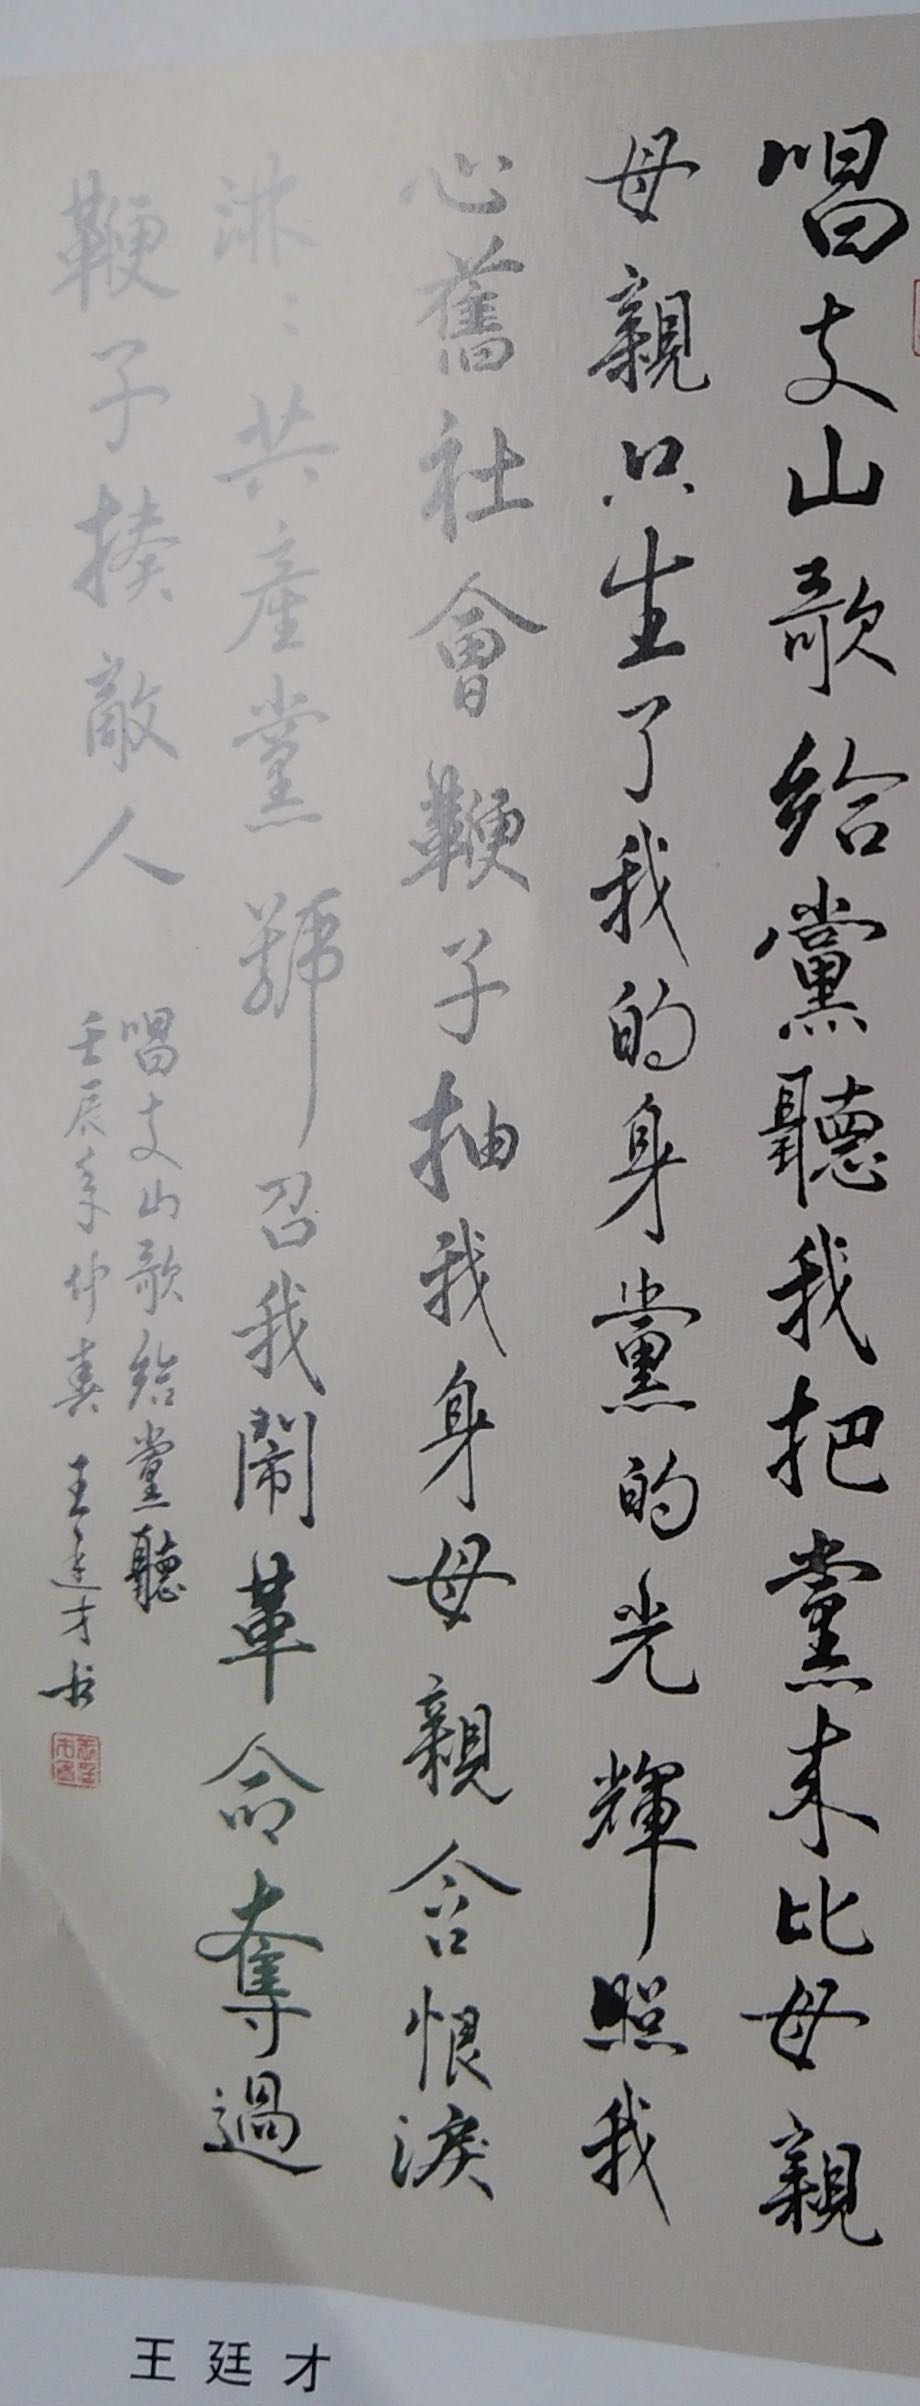 唱支山歌給黨聽我把黨来比母親
母親只生了我的身黨的光輝照我
心舊社會鞭子抽我身母親含恨淚
淋〻共產黨號召我鬧革命奪過
鞭子揍敵人
唱支山歌給黨聽
壬辰年仲春 王廷才书
王廷才